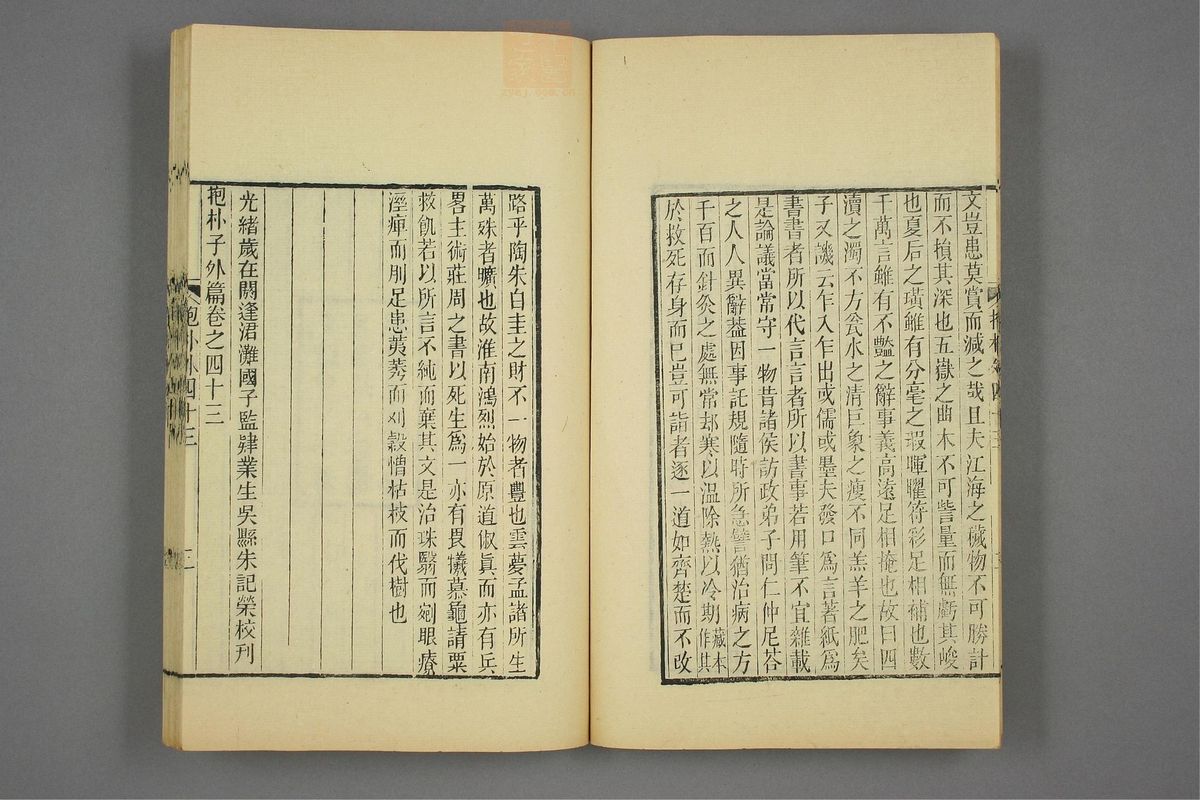 文豈患莫賞而減之哉且夫江海之穢物不可勝計
而不損其深也五嶽之曲木不可訾量而無虧其峻
也夏后之璜雖有分毫之瑕暉曜符彩足相補也數
千萬言雖有不豔之辭事義高遠足相掩也故曰四
瀆之濁不方瓮水之清巨象之瘦不同羔羊之肥矣
子又譏云乍入乍出或儒或墨夫發口爲言著紙爲
書書者所以代言言者所以書事若用筆不宜雜載
是論議當常守一物昔諸侯訪政弟子問仁仲尼荅
之人人異辭葢因事託規隨時所急譬猶治病之方
千百而針灸之處無常却寒以溫除熱以冷期藏本作其
於救死存身而已豈可詣者逐一道如齊楚而不改
路乎陶朱白圭之財不一物者豐也雲夢孟諸所生
萬殊者曠也故淮南鴻烈始於原道俶眞而亦有兵
畧主術莊周之書以死生爲一亦有畏犧慕龜請粟
救飢若以所言不純而棄其文是治珠翳而剜眼療
溼痺而刖足患荑莠而刈穀憎枯枝而伐樹也
光緒歲在閼逢涒灘國子監肄業生吳縣朱記榮校刊
抱朴子外篇卷之四十三
抱朴外四十三
三